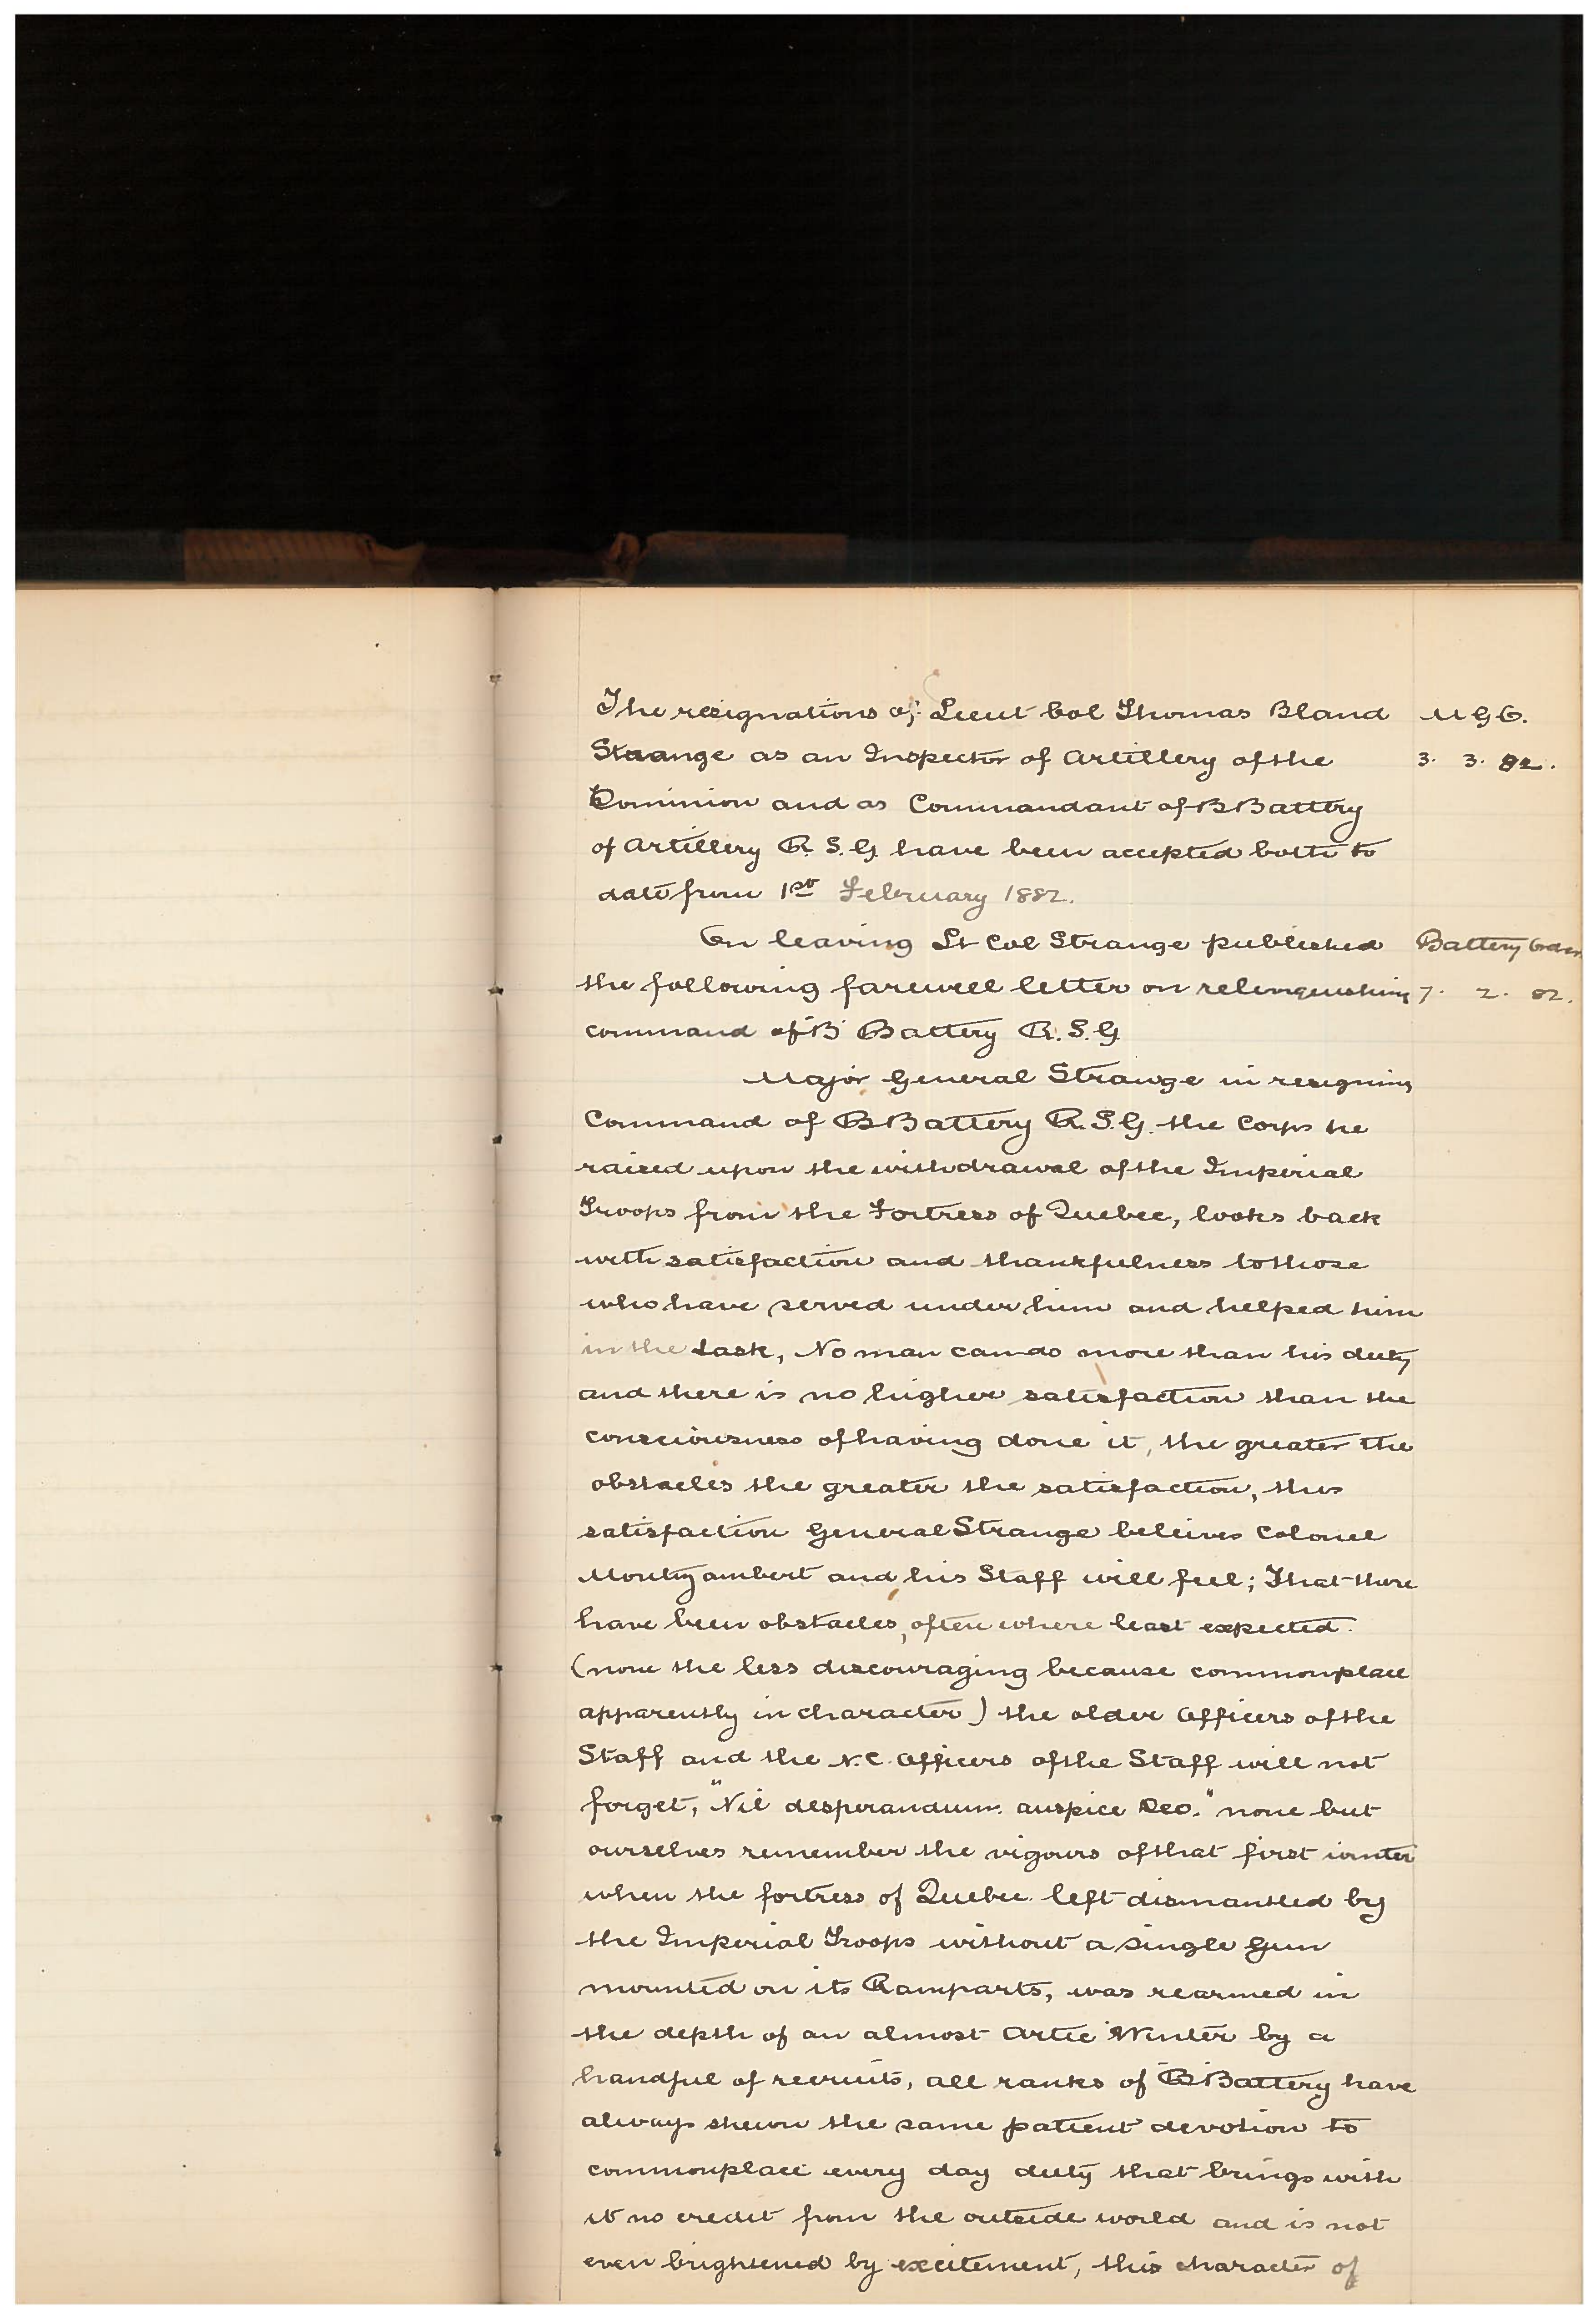 The resignations of Lieut Col Thomas Bland M G O.
Strange as an Inspector of Artillery of the 3. 3. 82.
Dominion and as Commandant of B Battery
of Artillery R. S. G. have been accepted both to
date from 1st February 1882.
On leaving Lt Col Strange published Battery Orders
the following farewell letter on relinquishing 7. 2. 82.
command of B Battery R. S. G.
Major General Strange in resigning
Command of B Battery R. S. G. the Corps he
raised upon the withdrawal of the Imperial
Troops from the Fortress of Quebec, looks back
with satisfaction and thankfulness to those
who have served under him and helped him
in the task, No man can do more than his duty
and there is no higher satisfaction than the
consciousness of having done it, the greater the
obstacles the greater the satisfaction, this
satisfaction General Strange beleives Colonel
Montizambert and his Staff will feel; That there
have been obstacles, often where least expected.
(none the less discouraging because commonplace
apparently in character) the older Officers of the
Staff and the N. C. Officers of the Staff will not
forget, "Nil desperandum auspice Deo." none but
ourselves remember the vigours of that first winter
when the fortress of Quebec left dismantled by
the Imperial Troops without a single Gun
mounted on its Ramparts, was rearmed in
the depth of an almost Artic Winter by a
handful of recruits, all ranks of B Battery have
always shewn the same patient devotion to
commonplace every day duty that brings with
it no credit from the outside world and is not
even brightened by excitement, this character of